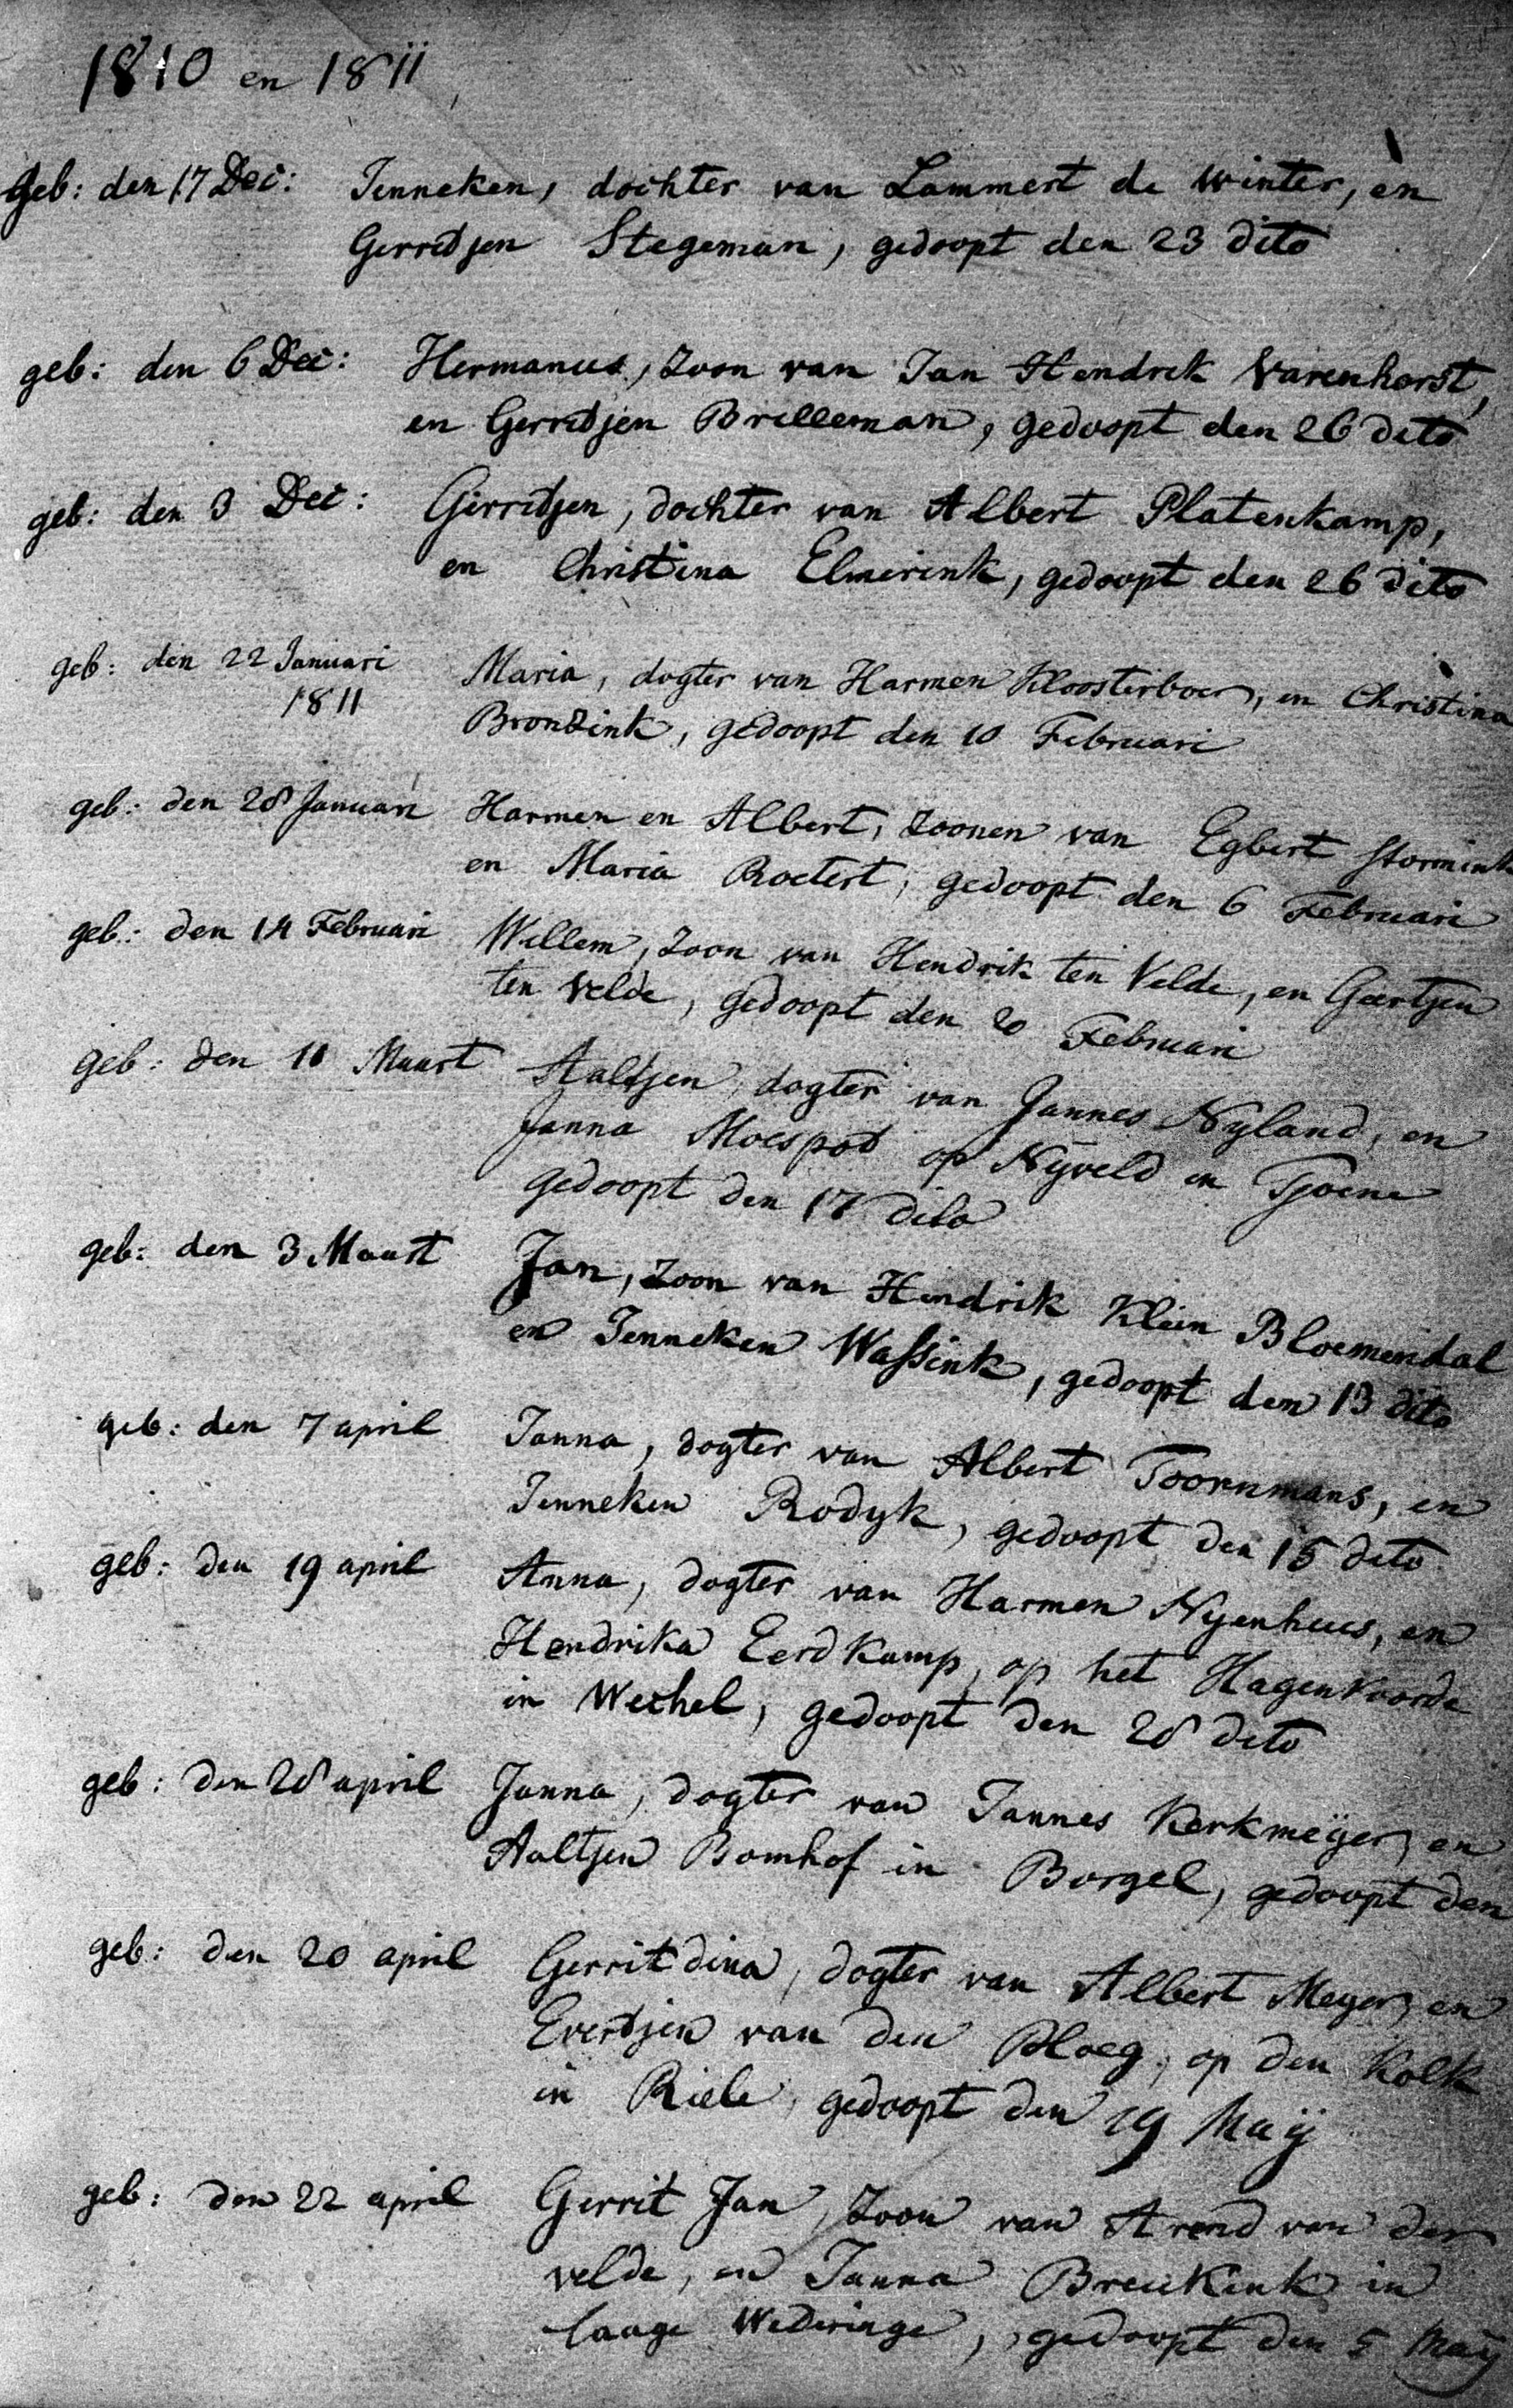 1810 en 1811
Geb: den 17 Dec: Jenneken, dochter van Lammert de Winter, en
Gerredjen Stegeman, gedoopt den 23 dito
geb: den 6 Dec: Hermanus, zoon van Jan Hendrik Varenhorst,
en Gerredjen Brilleman, gedoopt den 26 dito
geb: den 3 Dec: Gerredjen, dochter van Albert Platenkamp,
en Christina Elmerink, gedoopt den 26 dito
geb: den 22 Januari Maria, dogter van Harmen Kloosterboer, en Christina
1811 Bronzink, gedoopt den 10 Februari
geb: den 28 Januari Harmen en Albert, zoonen van Egbert Stormink
en Maria Roetert, gedoopt den 6 Februari
geb: den 14 Februari Willem, zoon van Hendrik ten Velde, en Geertjen
ten Velde, gedoopt den 20 Februari
geb: den 10 Maart Aaltjen, dogter van Jannes Nyland, en
Janna Moespot op Nyveld in Tjoene
gedoopt den 17 dito
geb: den 3 Maart Jan, zoon van Hendrik Klein Bloemendal
en Jenneken Wassink, gedoopt den 13 dito
geb: den 7 april Janna, dogter van Albert Toornmans, en
Jenneken Rodyk, gedoopt den 15 dito
geb: den 19 april Anna, dogter van Harmen Nyenhuis, en
Hendrika Eerdkamp, op het Hagenvoorde
in Wechel, gedoopt den 28 dito
geb: den 28 april Janna, dogter van Jannes Kerkmeijer, en
Aaltjen Bomhof in Borgel, gedoopt den
geb: den 20 april Gerritdina, dogter van Albert Meyer, en
Everdjen van den Ploeg, op den Kolk
in Riele, gedoopt den 19 Maij
geb: den 22 april Gerrit Jan, zoon van Arend van der
velde, en Janna Breukink in
laage Wederinge, gedoopt den 5 Maij